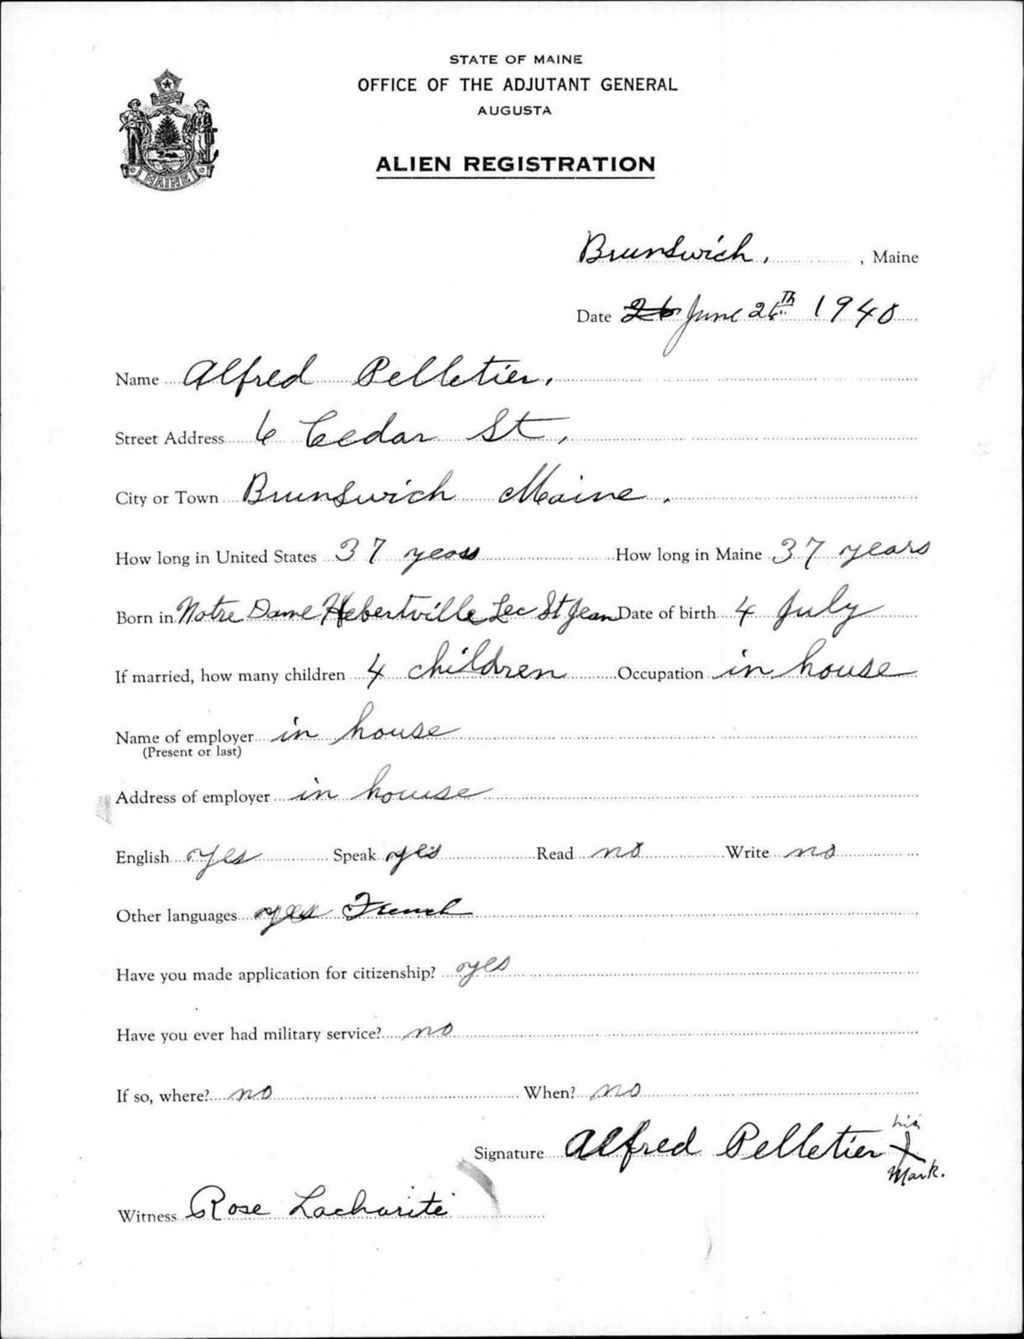 STATE OF MAINE
OFFICE OF THE ADJUTANT GENERAL
AUGUSTA
ALIEN REGISTRATION
MAINE
Brunswich, , Maine
Date 26 June 26th 1940
Name Alfred Pelletier,
Street Address 6 Cedar St,
City or Town Brunswich Maine.
How long in United States 37 years How long in Maine 37 years
Born in Notre Dame Hebertville Lec St Jean Date of birth 4 July
If married, how many children 4 children Occupation in house
Name of employer in house
(Present or last)
Address of employer in house
English yes Speak yes Read no Write no
Other languages yes French
Have you made application for citizenship? yes
Have you ever had military service? no
If so, where? no When? no
Signature Alfred Pelletier his X Mark.
Witness Rose Lacharité